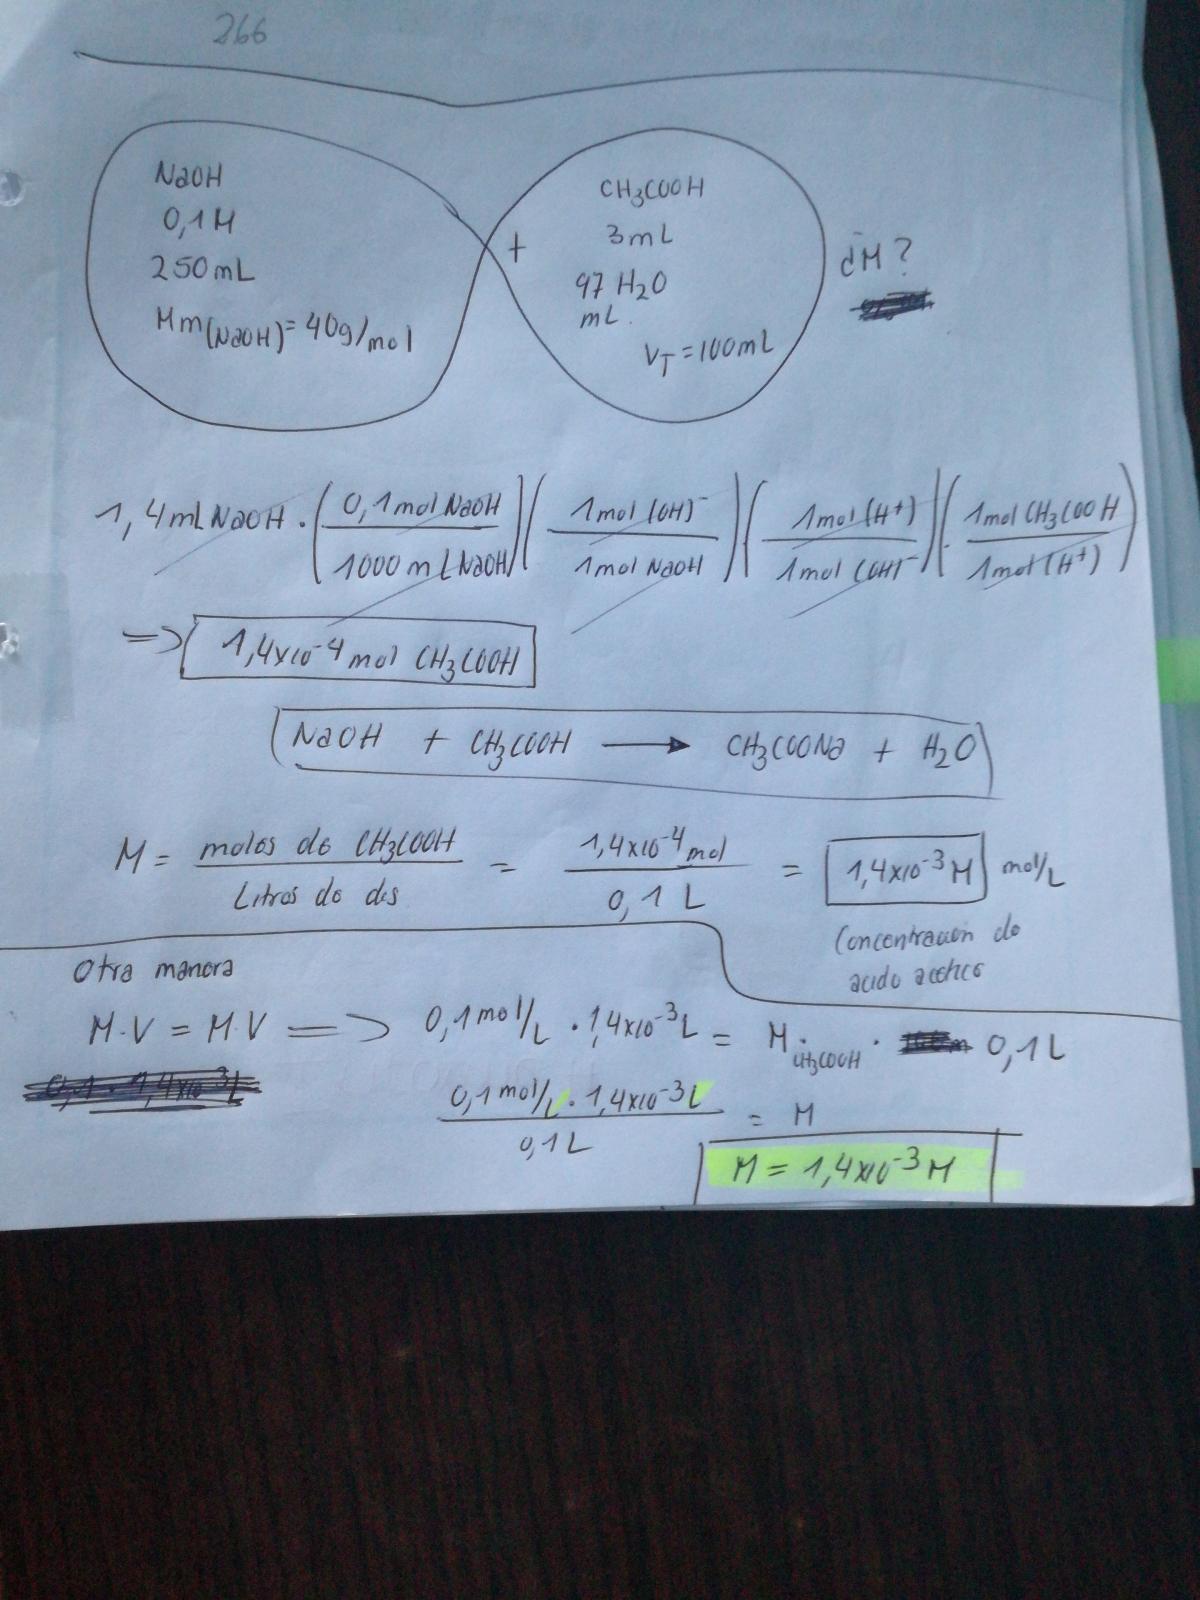 266
NaOH
0,1M
250mL
Mm(NaOH)=40g/mol
+
CH3COOH
3mL
97 H2O
mL.
VT=100mL
¿M?
1,4mL NaOH · (0,1mol NaOH / 1000mL NaOH) (1mol (OH)⁻ / 1mol NaOH) · (1mol (H⁺) / 1mol (OH)⁻) · (1mol CH3COOH / 1mol (H⁺))
=> 1,4x10⁻⁴ mol CH3COOH
NaOH + CH3COOH → CH3COONa + H2O
M = moles de CH3COOH / Litros de dis = 1,4x10⁻⁴ mol / 0,1 L = 1,4x10⁻³ M mol/L
Concentracion de
acido acetico
Otra manera
M·V = M·V => 0,1 mol/L · 1,4x10⁻³L = M CH3COOH · 0,1L
0,1 · 1,4x10⁻³L
0,1 mol/L · 1,4x10⁻³L / 0,1L = M
M = 1,4x10⁻³ M